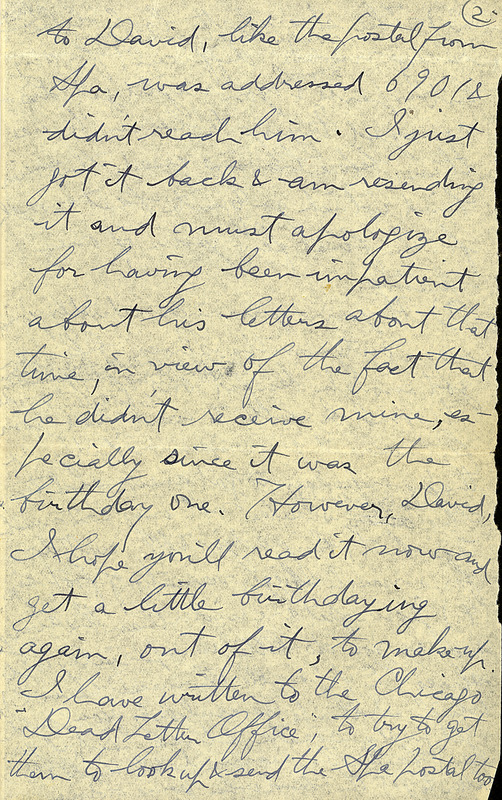 (2)
to David, like the postal from
Spa, was addressed 6901 &
didn't reach him. I just
got it back & am resending
it and must apologize
for having been impatient
about his letters about that
time, in view of the fact that
he didn't receive mine, es-
pecially since it was the
birthday one. However, David,
I hope you'll read it now and
get a little birthdaying
again, out of it, to make up.
I have written to the Chicago
"Dead Letter Office", to try to get
them to look up & send the Spa postal too